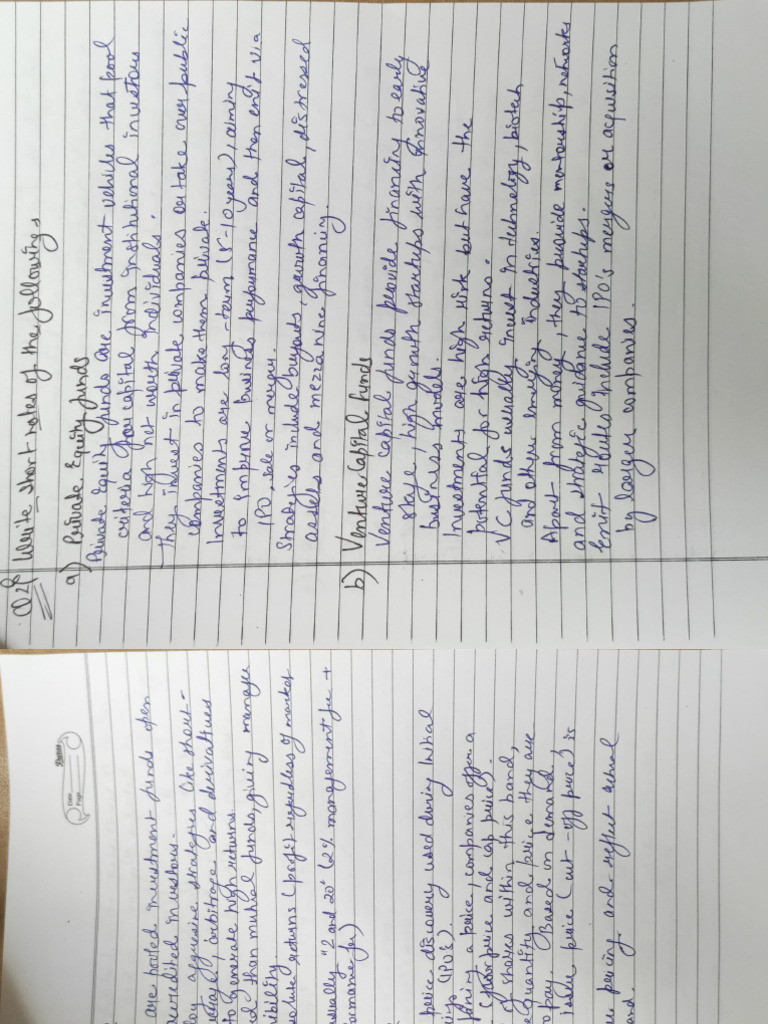 Q2) Write short notes of the following:
a) Private Equity funds
Private Equity funds are investment vehicles that pool
criteria your capital from institutional investors
and high net worth individuals.
They invest in private companies or take over public
companies to make them private.
Investments are long-term (5-10 years), aiming
to improve business performance and then exit via
IPO, sale or merger.
Strategies include buyouts, growth capital, distressed
assets and mezzanine financing.
b) Venture Capital funds
Venture capital funds provide financing to early
stage, high growth startups with innovative
business models.
Investments are high risk but have the
potential for high returns.
VC funds usually invest in technology, biotech
and other emerging industries.
Apart from money, they provide mentorship, networks
and strategic guidance to startups.
Exit routes include IPO's mergers or acquisition
by larger companies.
Date
Page
are pooled investment funds open
accredited investors.
aggressive strategies like short-
arbitrage and derivatives
to generate high returns.
than mutual funds, giving manager
returns (profit regardless of market
usually "2 and 20" (2% management fee +
price discovery used during Initial
(IPO's).
a price, companies offer a
(floor price and cap price).
shares within this band,
quantity and price they are
to pay. Based on demand,
issue price (cut-off price) is
pricing and reflect actual